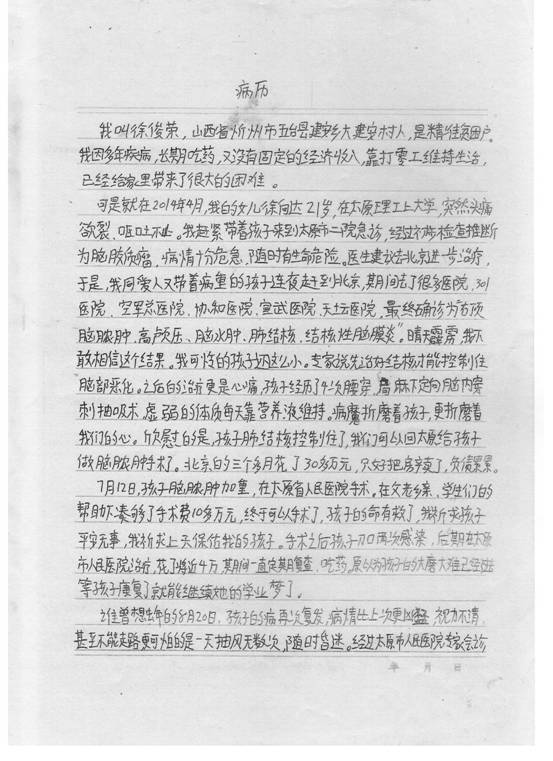 病历
我叫徐俊荣，山西省忻州市五台县建安乡大建安村人，是精准贫困户。
我因多年疾病，长期吃药，又没有固定的经济收入，靠打零工维持生活，
已经给家里带来了很大的困难。
可是就在2019年4月，我的女儿徐向达21岁，在太原理工上大学，突然头痛
欲裂、呕吐不止。我赶紧带着孩子来到太原市二院急诊，经过初步检查推断
为脑胶质瘤，病情十分危急，随时有生命危险。医生建议去北京进一步治疗，
于是，我同爱人又带着病重的孩子连夜赶到北京，期间去了很多医院，301
医院、空军总医院、协和医院、宣武医院、天坛医院，最终确诊为“右顶
脑脓肿、高颅压、脑水肿、肺结核、结核性脑膜炎”。晴天霹雳，我不
敢相信这个结果。我可怜的孩子还这么小。专家说先治好结核才能控制住
脑部恶化。之后的治疗更是心痛，孩子经历了4次腰穿，局麻下定向脑内穿
刺抽吸术，虚弱的体质每天靠营养液维持。病魔折磨着孩子，更折磨着
我们的心。欣慰的是，孩子肺结核控制住了，我们可以回太原给孩子
做脑脓肿手术了。北京的三个多月花了30多万元，只好把房卖了，负债累累。
7月12日，孩子脑脓肿加重，在太原省人民医院手术。在父老乡亲、学生们的
帮助下凑够了手术费10多万元，终于可以手术了，孩子的命有救了，我祈求孩子
平安无事，我祈求上天保佑我的孩子。手术之后孩子刀口两次感染，后期在太原
市人民医院治疗，花了将近4万，期间一直定期复查，吃药。原以为孩子的大磨大难已经过
等孩子康复了就能继续她的学业梦了。
谁曾想去年的8月20日，孩子的病再次复发，病情比上次更凶猛，视力不清，
甚至不能走路更可怕的是一天抽风无数次，随时昏迷。经过太原市人民医院专家会诊
年 月 日